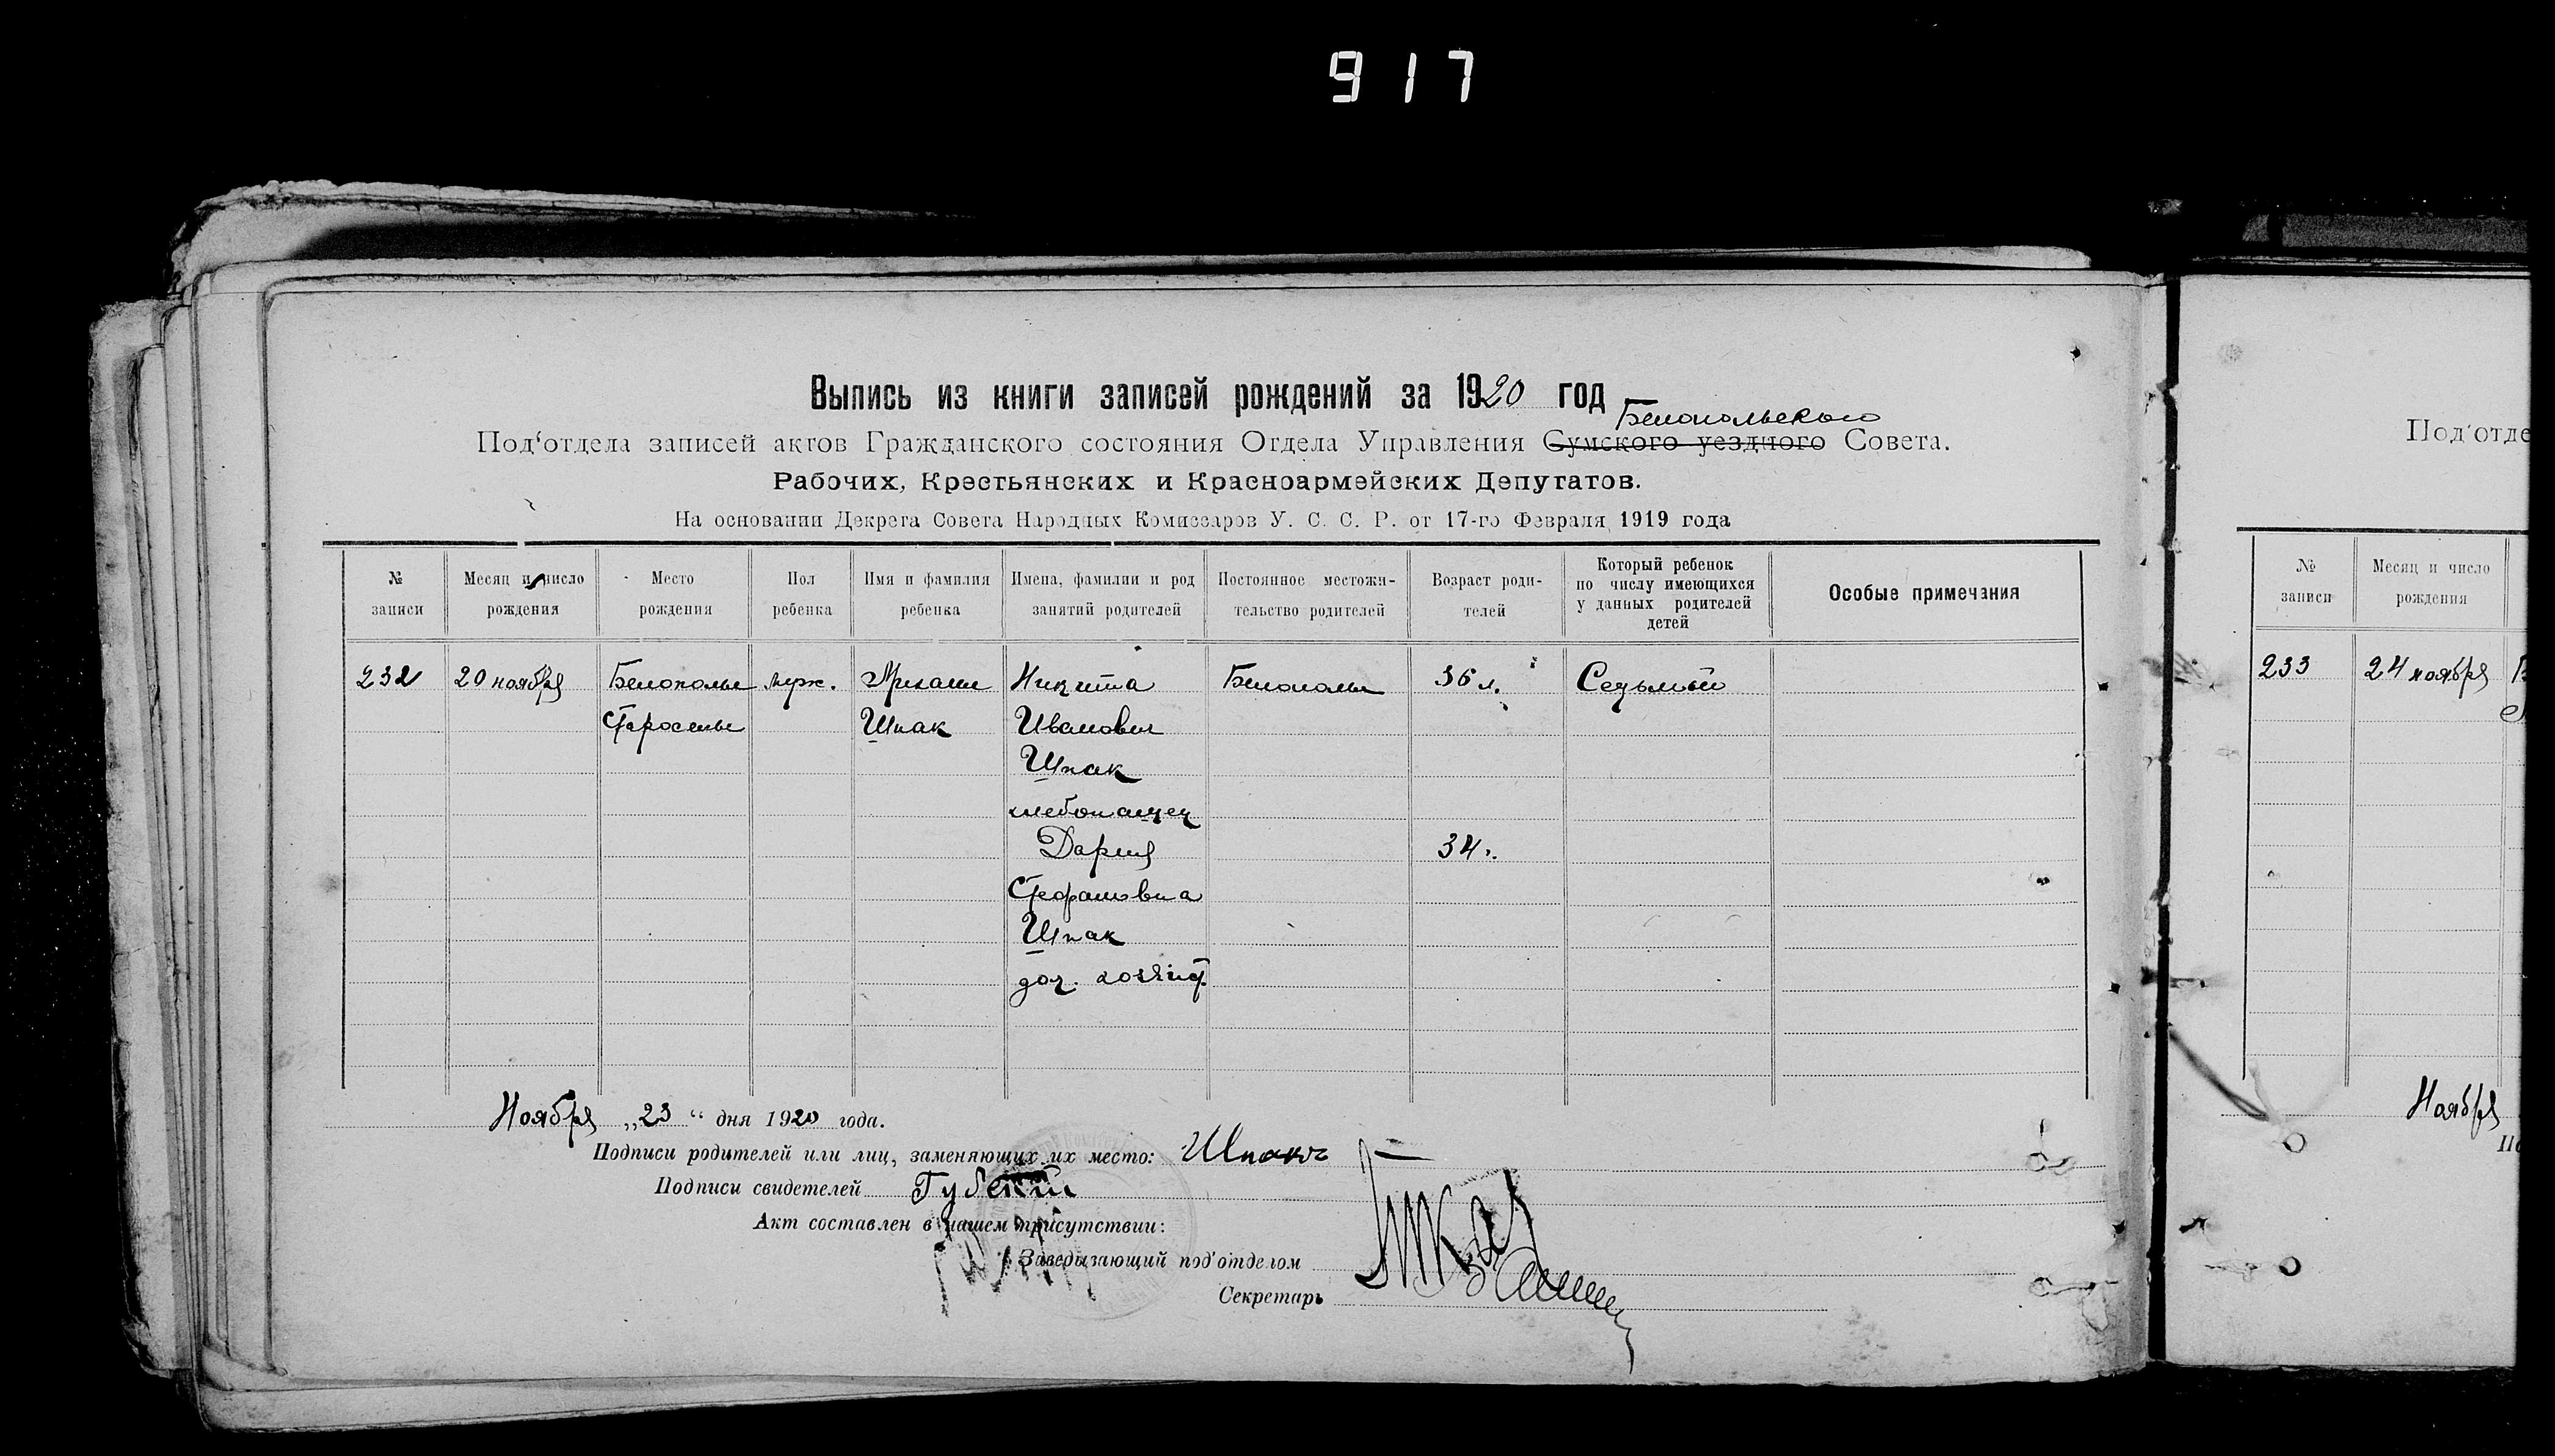 917
Выпись из книги записей рождений за 1920 год
Белопольского
Под'отдела записей актов Гражданского состояния Отдела Управления Сумского уездного Совета.
Рабочих, Крестьянских и Красноармейских Депутатов.
На основании Декрета Совета Народных Комиссаров У. С. С. Р. от 17-го Февраля 1919 года
№ записи
Месяц и число рождения
Место рождения
Пол ребенка
Имя и фамилия ребенка
Имена, фамилии и род занятий родителей
Постоянное местожительство родителей
Возраст родителей
Который ребенок по числу имеющихся у данных родителей детей
Особые примечания
232
20 ноября
Белополье
Староселье
муж.
Михаил
Шпак
Никита
Иванович
Шпак
хлебопашец
Дария
Стефановна
Шпак
дом. хозяйст.
Белополье
36 л.
34.
Седьмой
Ноября „23“ дня 1920 года.
Подписи родителей или лиц, заменяющих их место: Шпакъ
Подписи свидетелей
Акт составлен в нашем присутствии:
Заведывающий под'отделом
Секретарь
Под'отде
№ записи
Месяц и число рождения
233
24 ноября
Ноября